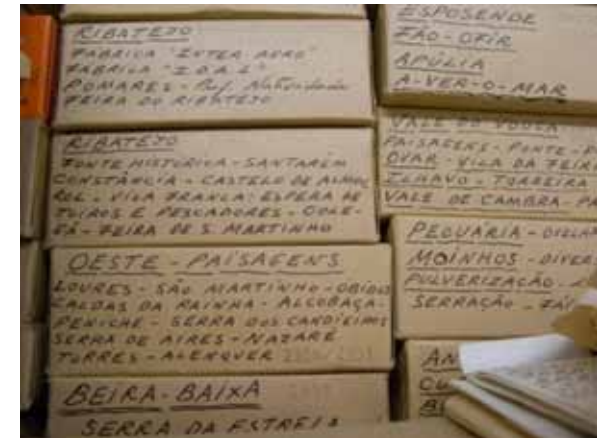 RIBATEJO
FABRICA "INTER-AGRO"
FABRICA "I.D.A.L"
POMARES - Prof. Natividade
FEIRA DO RIBATEJO
RIBATEJO
FONTE HISTORICA - SANTARÉM
CONSTÂNCIA - CASTELO DE ALMOU
ROL - VILA FRANCA: ESPERA DE
TOIROS E PESCADORES - GOLE-
GÃ - FEIRA DE S. MARTINHO
OESTE - PAISAGENS
LOURES - SÃO MARTINHO - OBIDOS
CALDAS DA RAINHA - ALCOBAÇA -
PENICHE - SERRA DOS CANDIEIROS
SERRA DE AIRES - NAZARÉ
TORRES - ALENQUER
BEIRA-BAIXA
SERRA DA ESTRELA
ESPOSENDE
FÃO-OFIR
APÚLIA
A-VER-O-MAR
VALE DO VOUGA
PAISAGENS - PONTE -
OVAR - VILA DA FEIRA
ILHAVO - TORREIRA
VALE DE CAMBRA - PA
PECUÁRIA -
MOÍNHOS - DIVER
PULVERIZAÇÃO -
SERRAÇÃO -
AN
CU